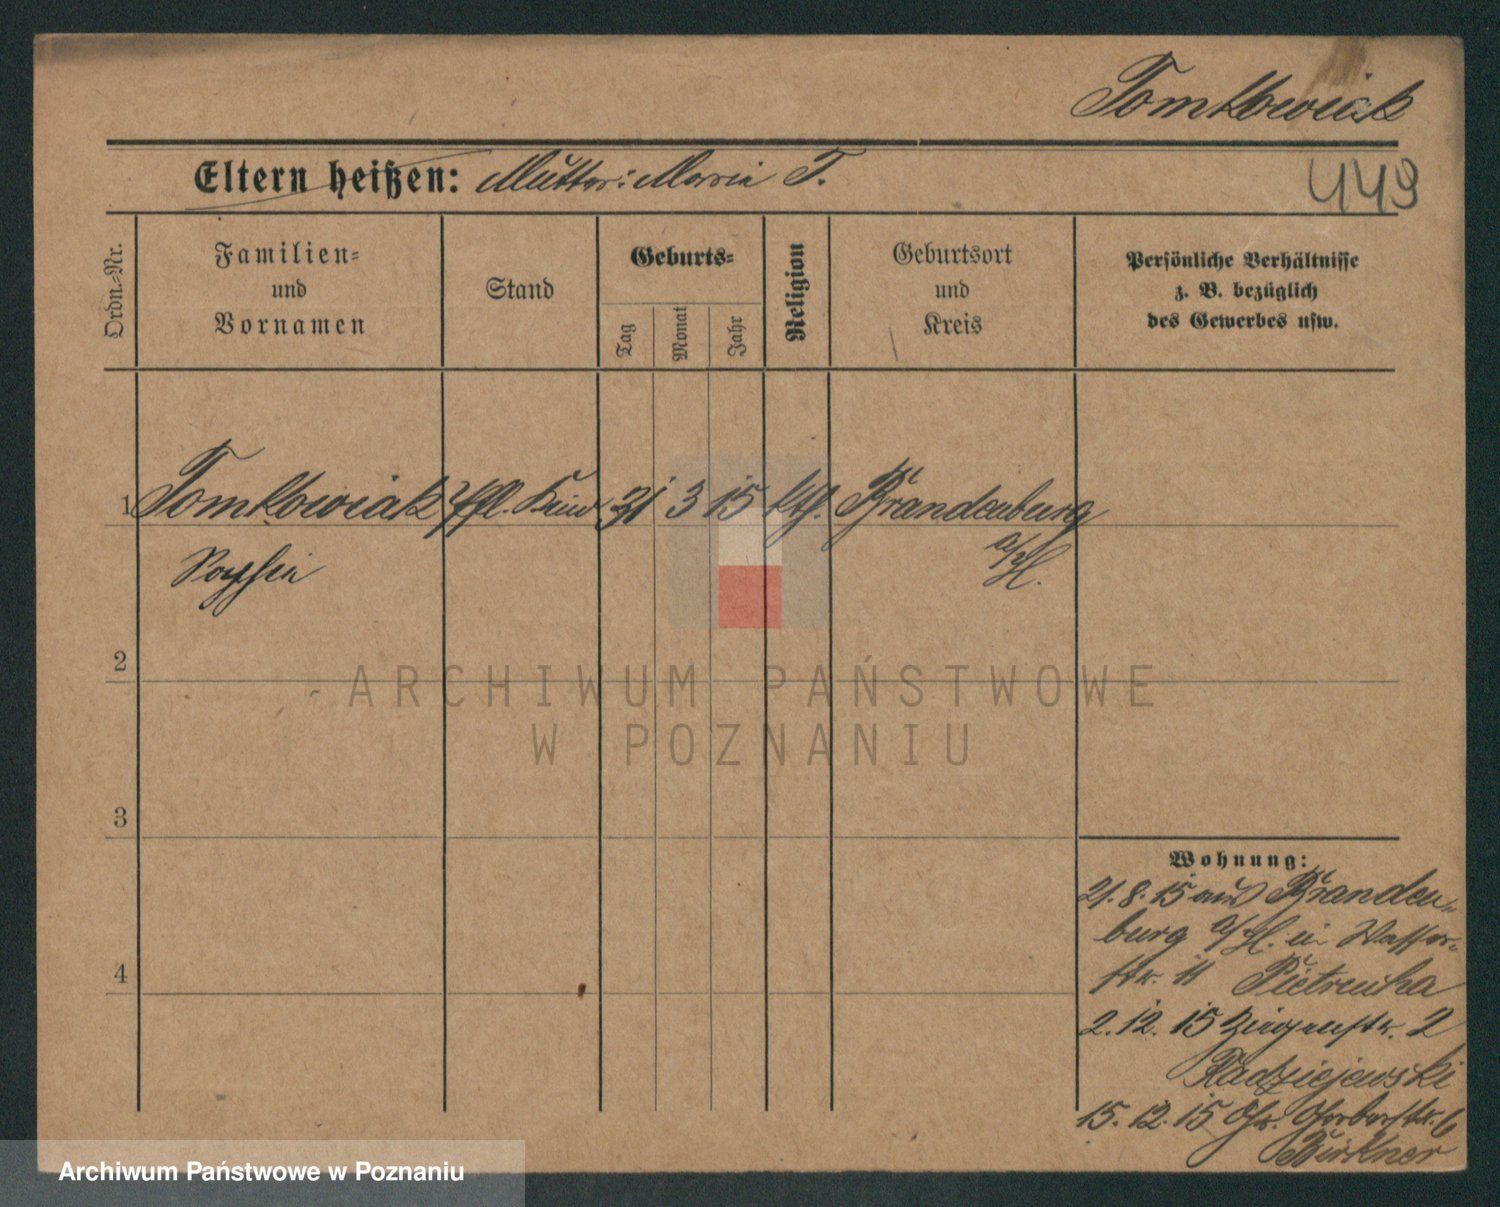 Tomkowiak
449
Eltern heißen: Mutter: Maria T.
Ordn.-Nr.
Familien-
und
Vornamen
Stand
Geburts-
Tag
Monat
Jahr
Religion
Geburtsort
und
Kreis
Persönliche Verhältnisse
z. B. bezüglich
des Gewerbes usw.
1 Tomkowiak Pfl. Kind 31 3 15 kth. Brandenburg
a/H.
Sophia
2
3
4
Wohnung:
21.8.15 aus Branden-
burg a/H. in Wasser-
str. 11
2.12.15 Ziegenstr. 2
Radziejewski
15.12.15 Gr. Gerberstr. 6
Birkner
ARCHIWUM PAŃSTWOWE
W POZNANIU
Archiwum Państwowe w Poznaniu